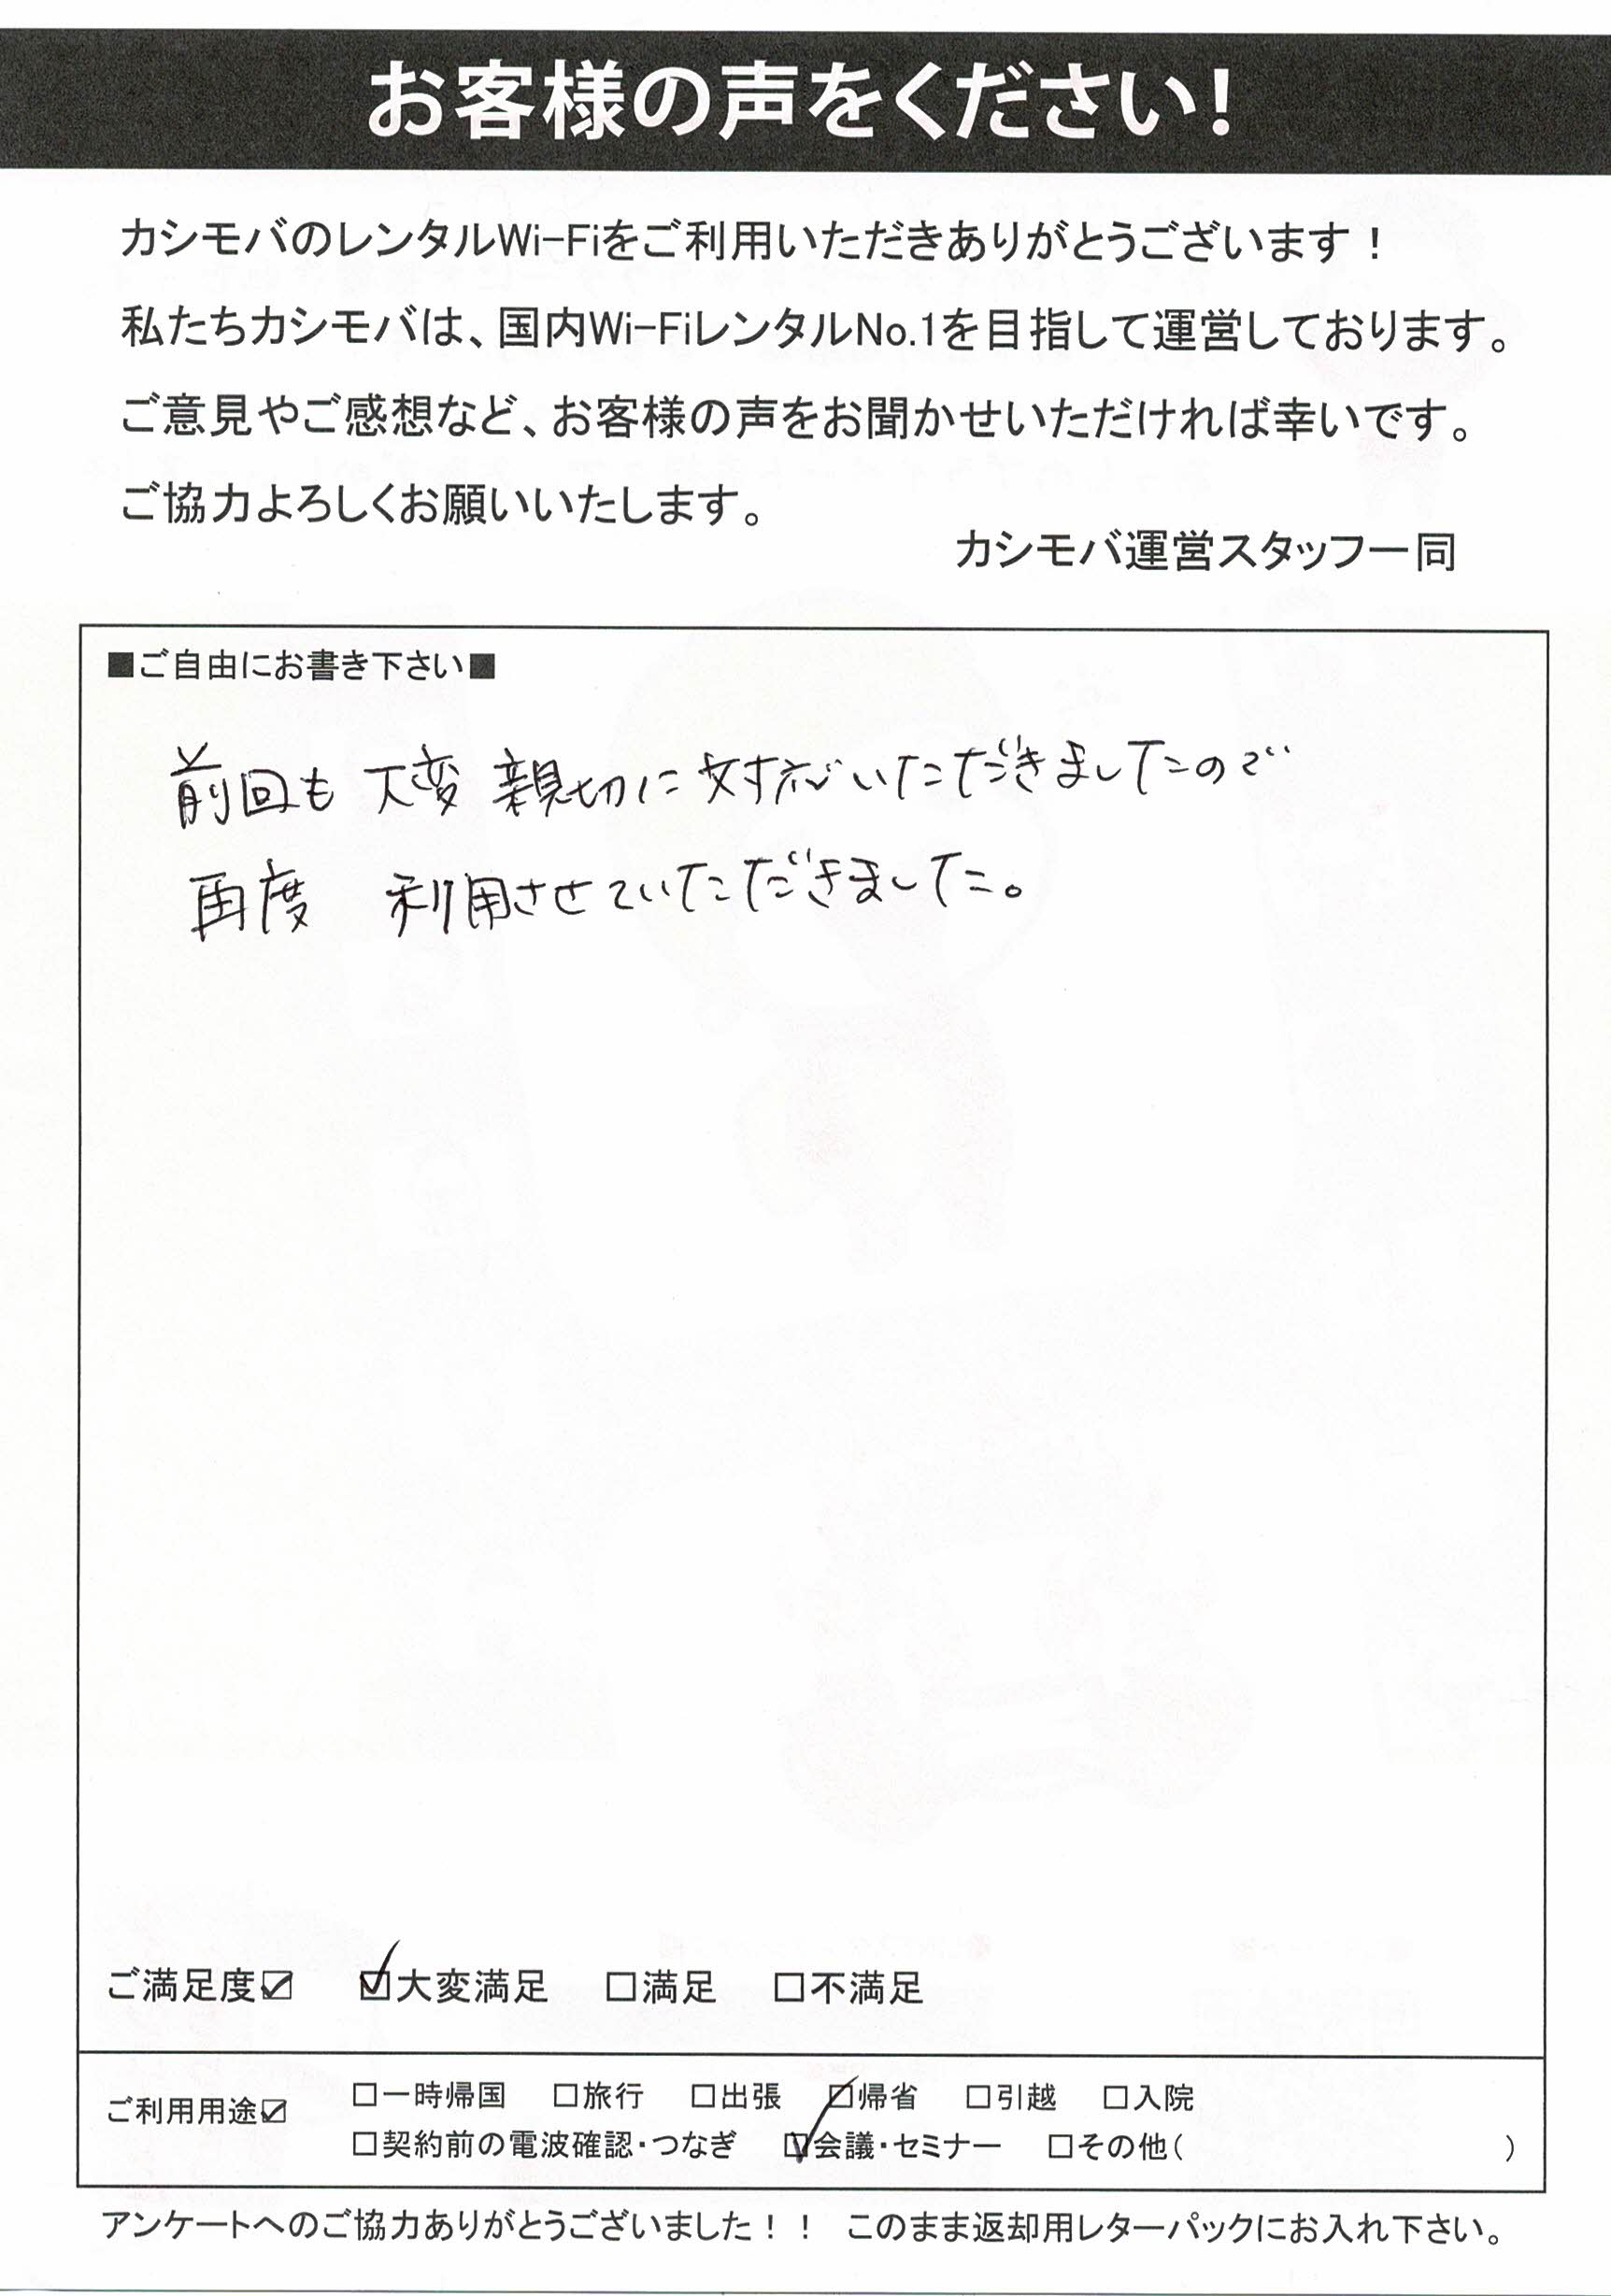 お客様の声をください!
カシモバのレンタルWi-Fiをご利用いただきありがとうございます！
私たちカシモバは、国内Wi-FiレンタルNo.1を目指して運営しております。
ご意見やご感想など、お客様の声をお聞かせいただければ幸いです。
ご協力よろしくお願いいたします。
カシモバ運営スタッフ一同
■ご自由にお書き下さい■
前回も 大変 親切に対応いただきましたので
再度 利用させていただきました。
ご満足度☑ ☑大変満足 □満足 □不満足
ご利用用途☑ □一時帰国 □旅行 □出張 □帰省 □引越 □入院
□契約前の電波確認・つなぎ ☑会議・セミナー □その他( )
アンケートへのご協力ありがとうございました！！ このまま返却用レターパックにお入れ下さい。